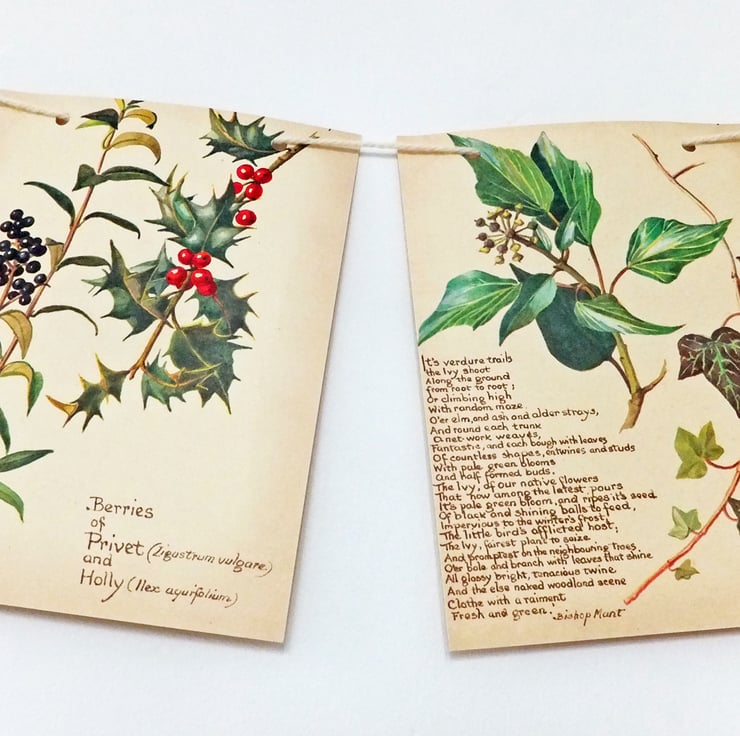 Berries
of
Privet (Ligustrum vulgare)
and
Holly (Ilex aquifolium)
It's verdure trails
the Ivy shoot
Along the ground
from root to root;
Or climbing high
With random maze
O'er elm, and ash and alder strays,
And round each trunk
a net-work weaves,
Fantastic, and each bough with leaves
Of countless shapes, entwines and studs
With pale green blooms
And half formed buds.
The Ivy, of our native flowers
That now among the latest pours
It's pale green bloom, and ripes it's seed
Of black and shining balls to feed,
Impervious to the winter's frost,
The little bird's afflicted host;
The Ivy, fairest plant to seize
And promptest on the neighbouring trees,
O'er bole and branch with leaves that shine
All glossy bright, tenacious twine
And the else naked woodland scene
Clothe with a raiment
Fresh and green. Bishop Mant